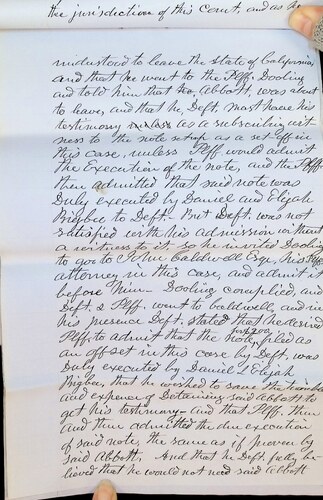 the jurisdiction of this Court, and as he
understood to leave the state of California
and that he went to the Plff, Dooling
and told him that he, Abbott, was about
to leave, and that he, Deft. must have his
testimony as a subscribing wit
ness to the note setup as a set off in
this case, unless Plff would admit
the Execution of the note, and the Plff
then admitted that said note was
Duly executed by Daniel and Elijah
Bigbee to Deft. But Deft. was not
satisfied with his admission without
a witness to it. so he invited Dooling
to go to John Caldwell Esqr, his Plffs
attorney in this case, and admit it
before him Dooling complied, and
Deft. & Plff. went to Caldwells, and in
his presence Deft. stated that he desired
Plff, to admit that the note, filed as
an offset in this case by Deft. was
Duly executed by Daniel & Elijah
Bigbee, that he wished to save the trouble
and expense of Detaining said Abbott to
get his testimony - and that Plff. then
and there admitted the due execution
of said note, the same as if proven by
said Abbott. And that he Deft. fully be-
lieved that he would not need said Abbott